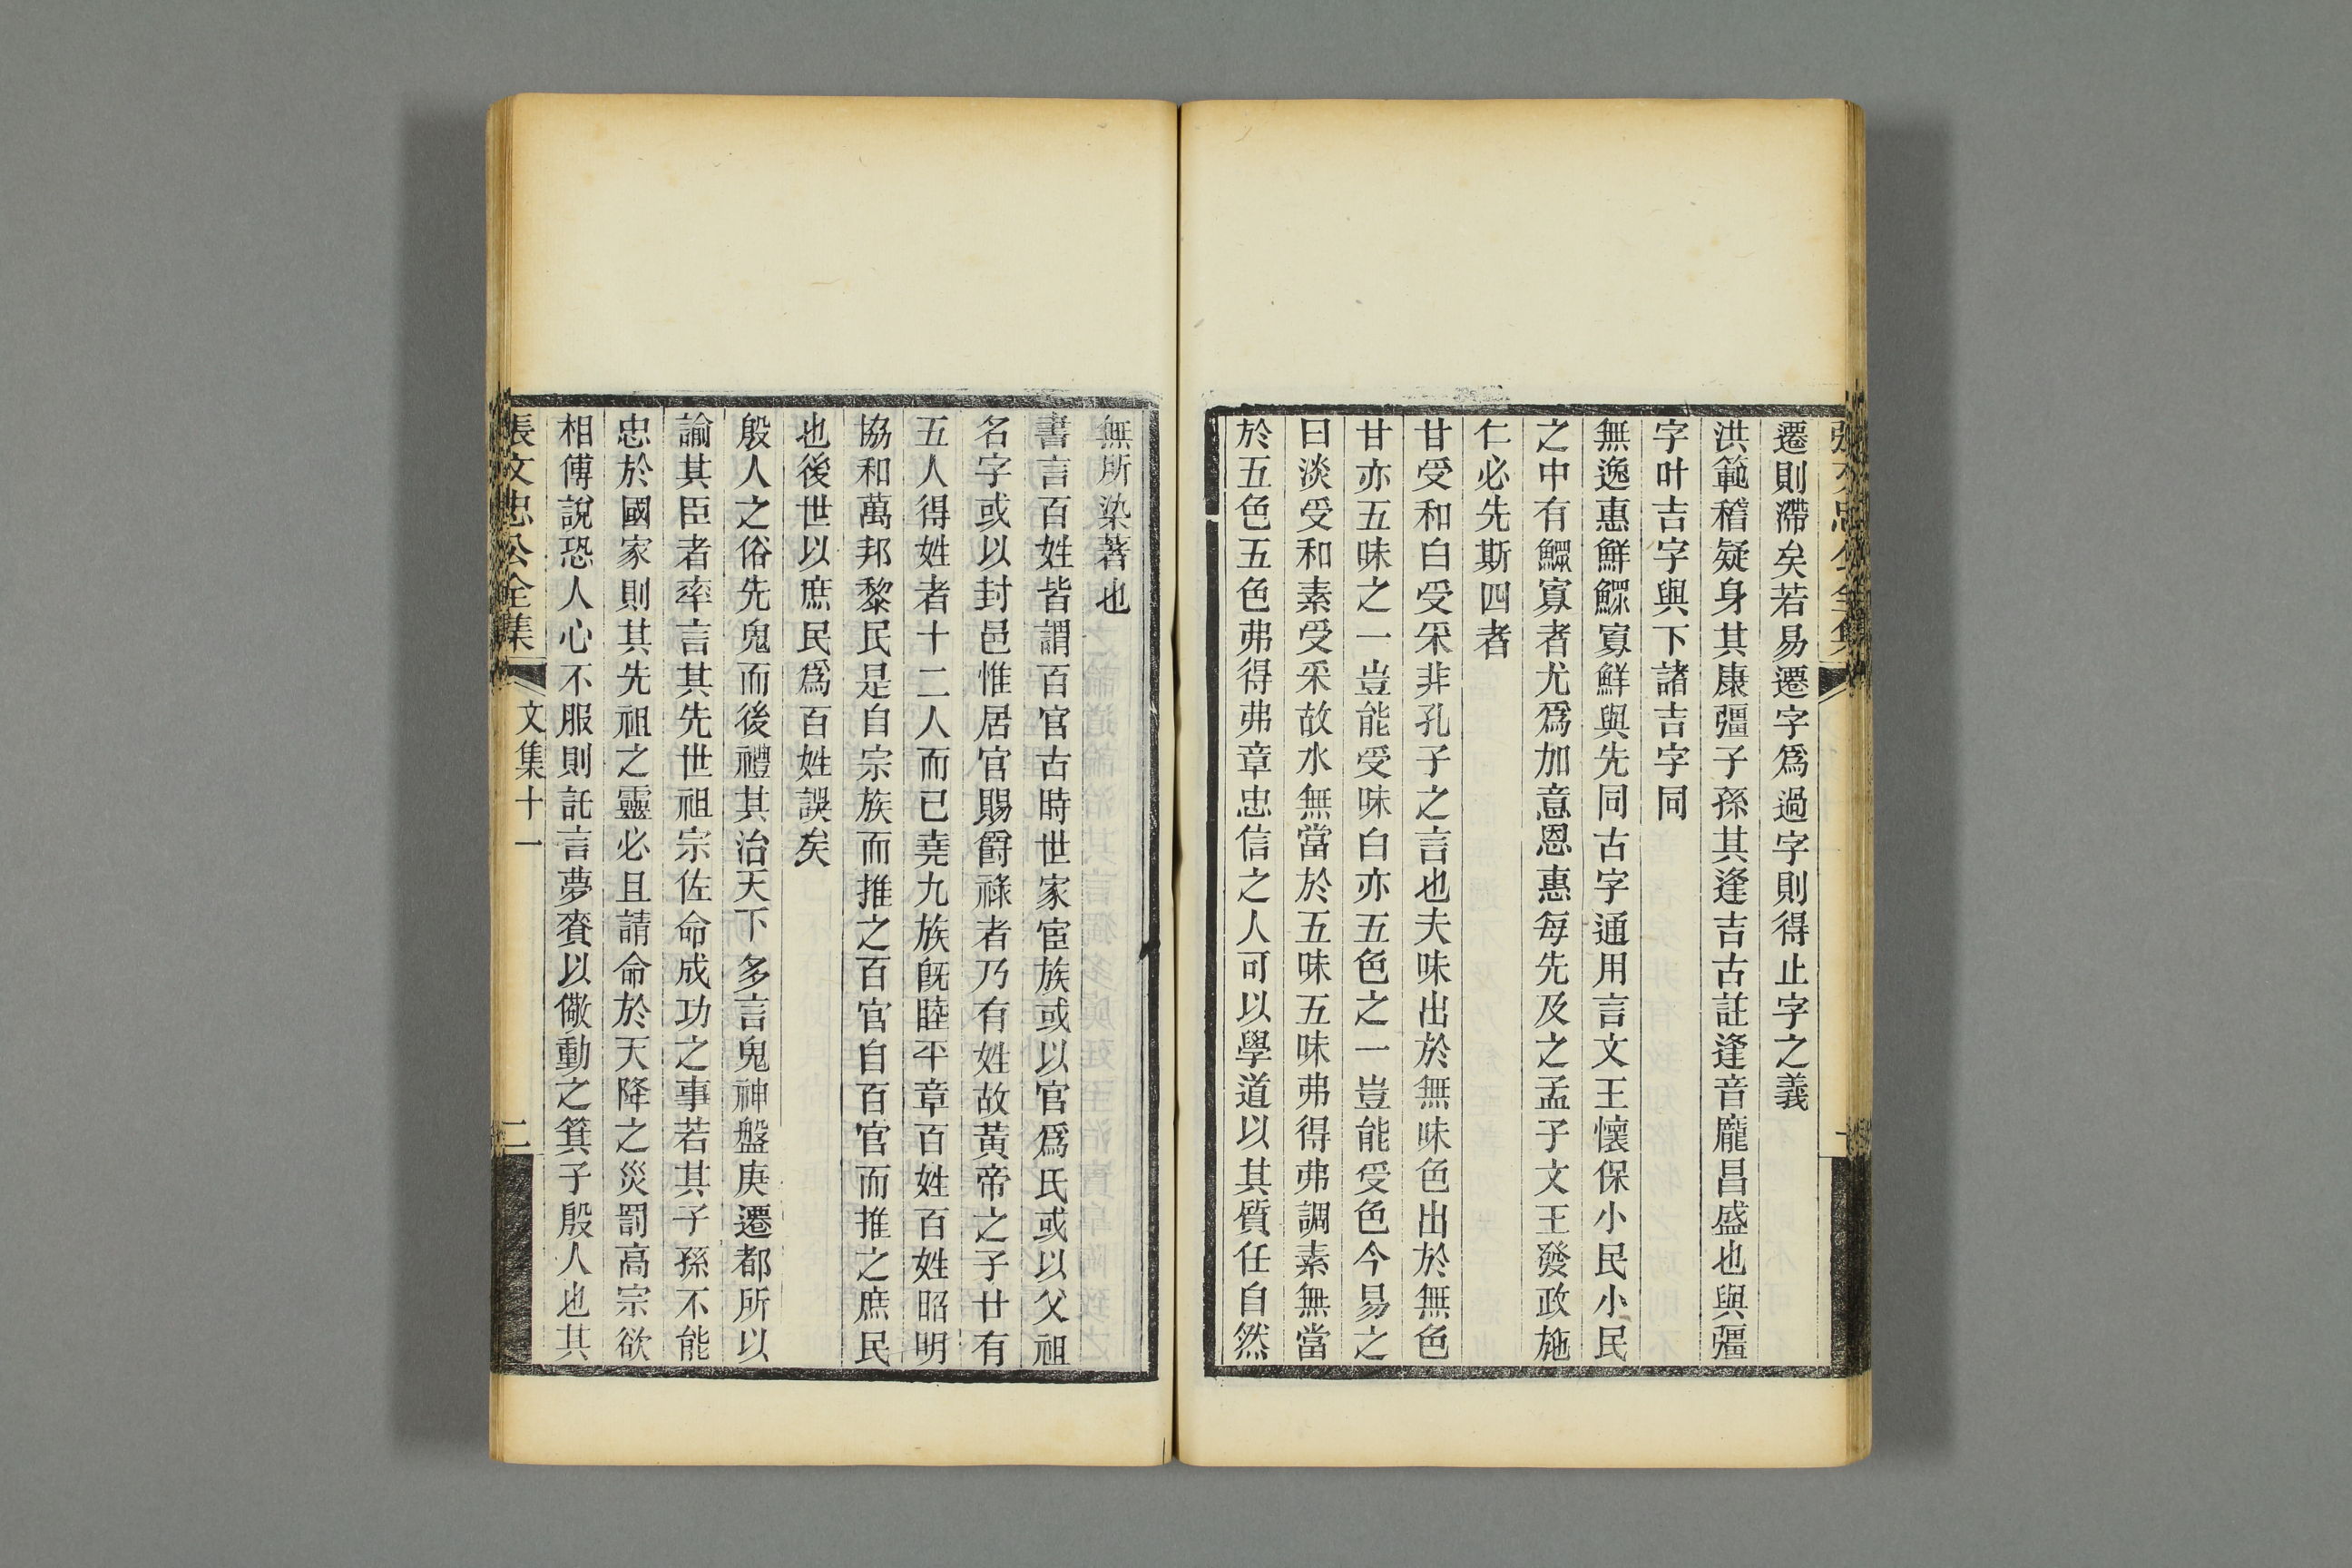 遷則滯矣若易遷字爲過字則得止字之義
洪範稽疑身其康彊子孫其逢吉古註逢音龐昌盛也與彊
字叶吉字與下諸吉字同
無逸惠鮮鰥寡鮮與先同古字通用言文王懷保小民小民
之中有鰥寡者尤爲加意恩惠每先及之孟子文王發政施
仁必先斯四者
甘受和白受采非孔子之言也夫味出於無味色出於無色
甘亦五味之一豈能受味白亦五色之一豈能受色今易之
曰淡受和素受采故水無當於五味五味弗得弗調素無當
於五色五色弗得弗章忠信之人可以學道以其質任自然
無所染著也
書言百姓皆謂百官古時世家宦族或以官爲氏或以父祖
名字或以封邑惟居官賜爵祿者乃有姓故黃帝之子廿有
五人得姓者十二人而已堯九族旣睦平章百姓百姓昭明
協和萬邦黎民是自宗族而推之百官自百官而推之庶民
也後世以庶民爲百姓誤矣
殷人之俗先鬼而後禮其治天下多言鬼神盤庚遷都所以
諭其臣者率言其先世祖宗佐命成功之事若其子孫不能
忠於國家則其先祖之靈必且請命於天降之災罰高宗欲
相傅說恐人心不服則託言夢賚以儆動之箕子殷人也其
張文忠公全集 文集十一 二